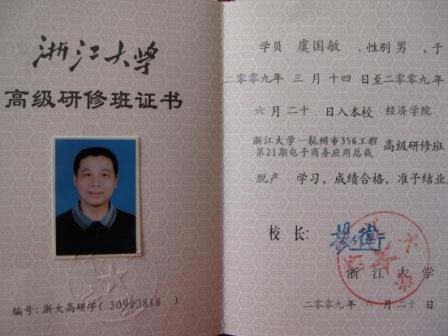 浙江大学
高级研修班证书
编号:浙大高研学(30903818)
学员 虞国敏,性别男,于
二〇〇九年 三月十四日至二〇〇九年
六月二十日入本校 经济学院
浙江大学—杭州市356工程
第21期电子商务应用总裁 高级研修班
脱产 学习,成绩合格,准予结业
校长:
浙江大学
二〇〇九年六月二十日